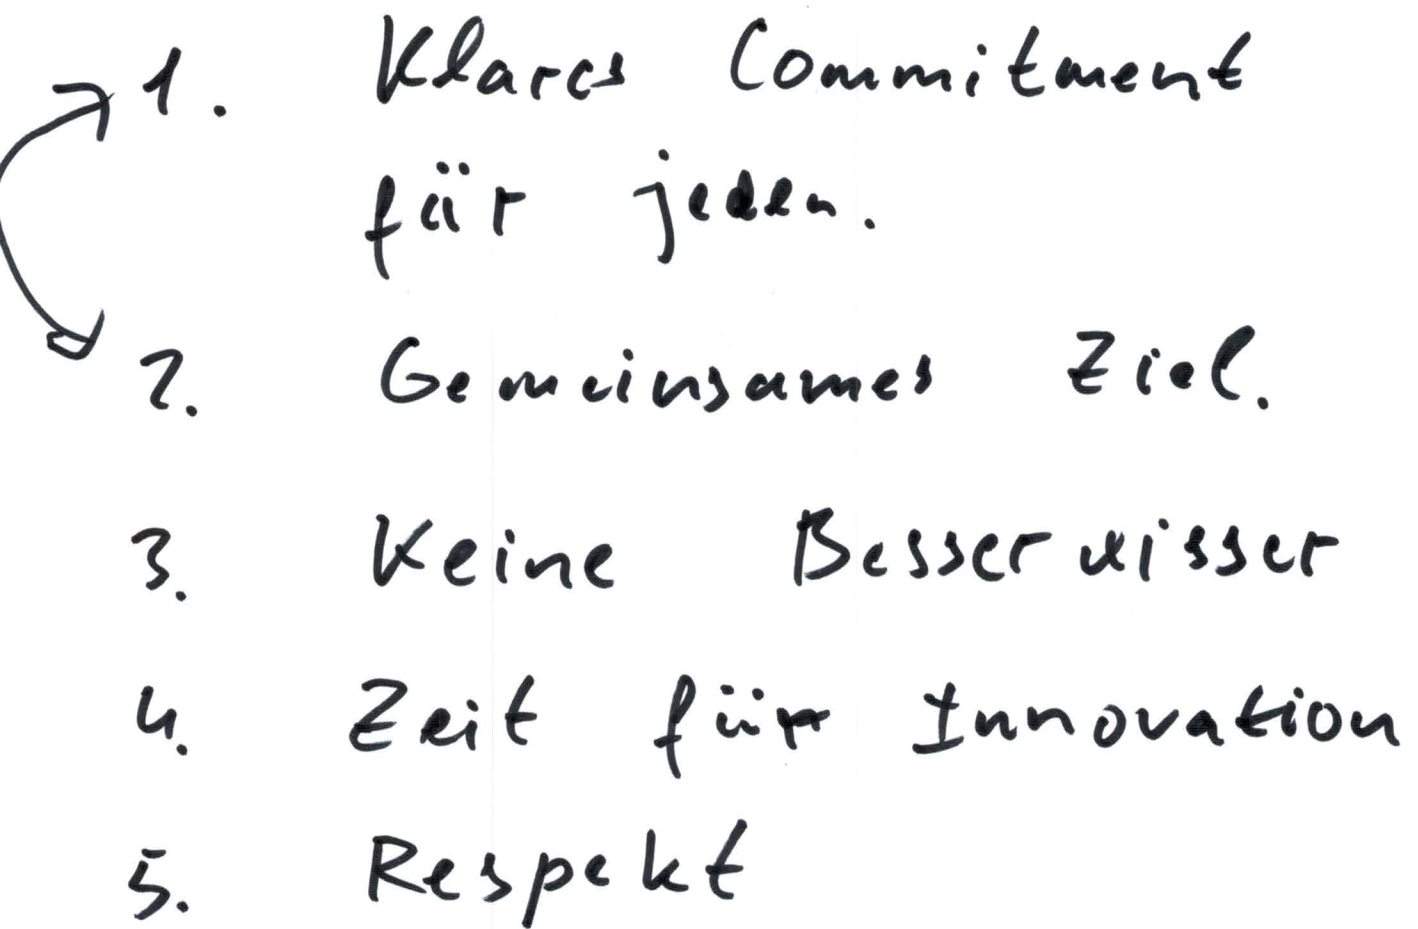 1. Klares Commitment
für jeden.
2. Gemeinsames Ziel.
3. Keine Besserwisser
4. Zeit für Innovation
5. Respekt